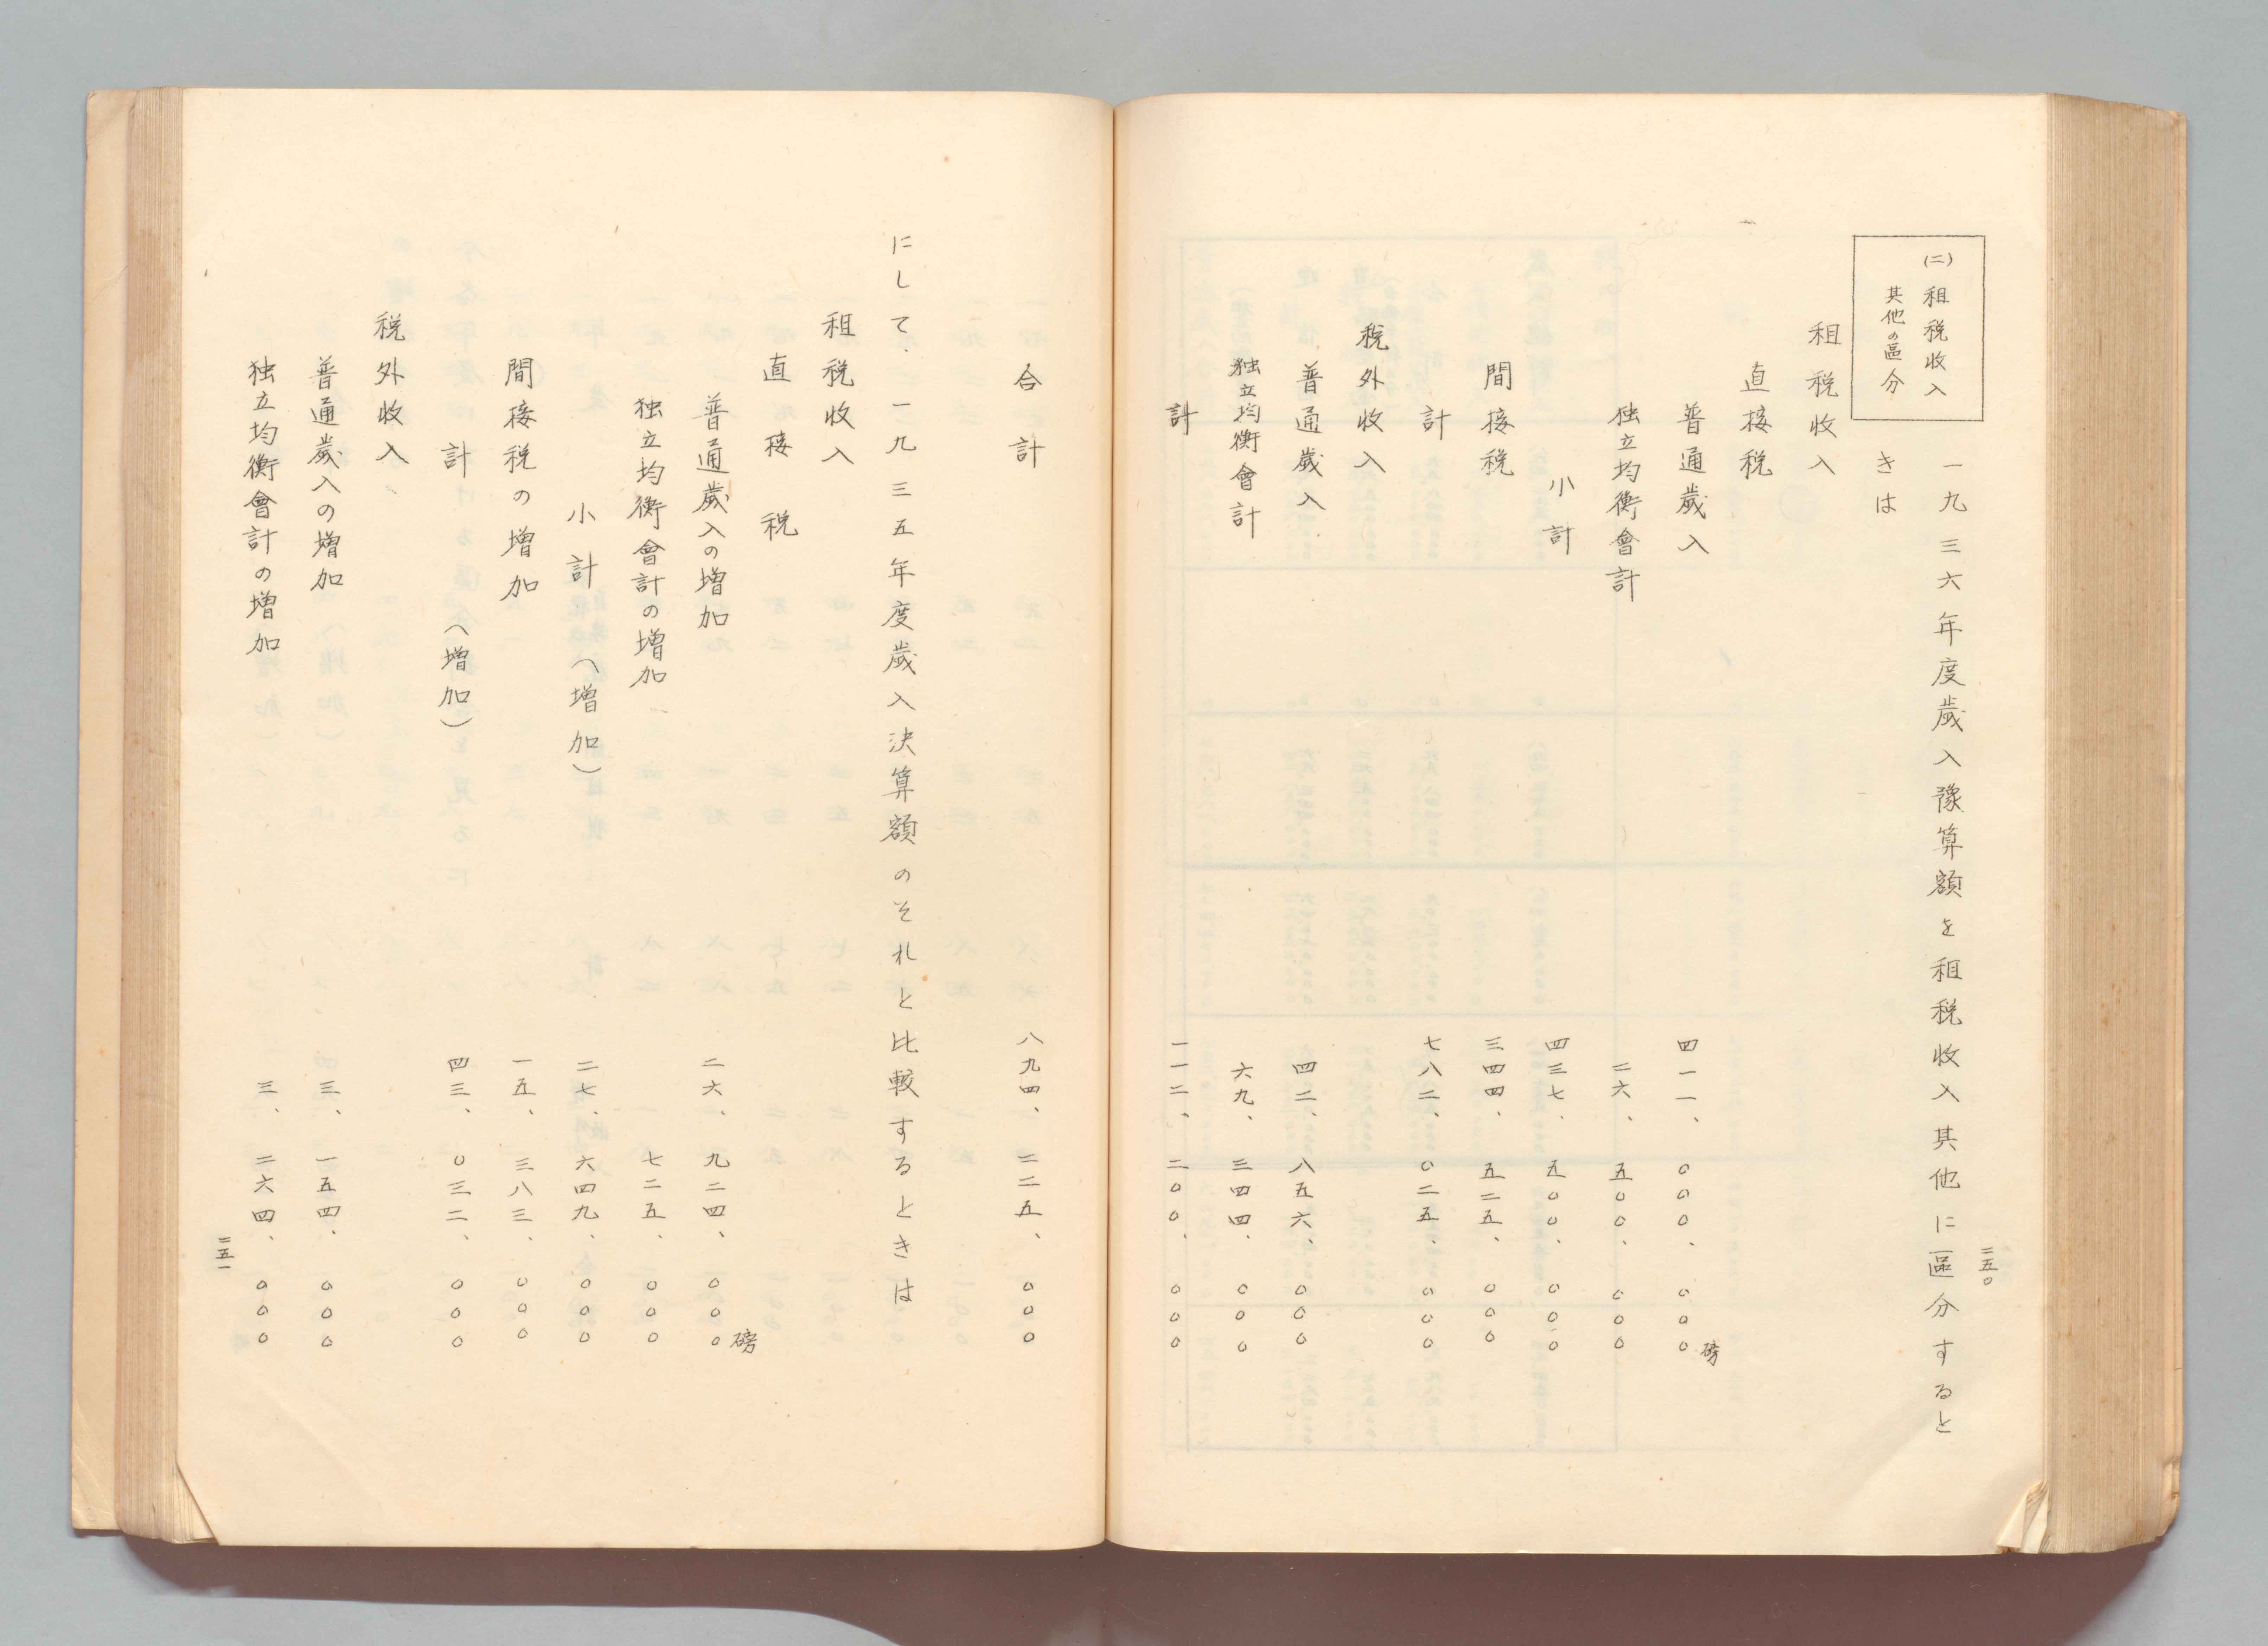 二五〇
(二) 租税收入
其他の區分
一九三六年度歲入豫算額を租税收入其他に區分すると
きは
租税收入
直接税
普通歲入 四一一、〇〇〇、〇〇〇磅
独立均衡會計 二六、五〇〇、〇〇〇
小計 四三七、五〇〇、〇〇〇
間接税 三四四、五二五、〇〇〇
計 七八二、〇二五、〇〇〇
税外收入
普通歲入 四二、八五六、〇〇〇
独立均衡會計 六九、三四四、〇〇〇
計 一一二、二〇〇、〇〇〇
合計 八九四、二二五、〇〇〇
にして、一九三五年度歲入決算額のそれと比較するときは
租税收入
直接税
普通歲入の増加 二六、九二四、〇〇〇磅
独立均衡會計の増加 七二五、〇〇〇
小計(増加) 二七、六四九、〇〇〇
間接税の増加 一五、三八三、〇〇〇
計(増加) 四三、〇三二、〇〇〇
税外收入
普通歲入の増加 三、一五四、〇〇〇
独立均衡會計の増加 三、二六四、〇〇〇
二五一